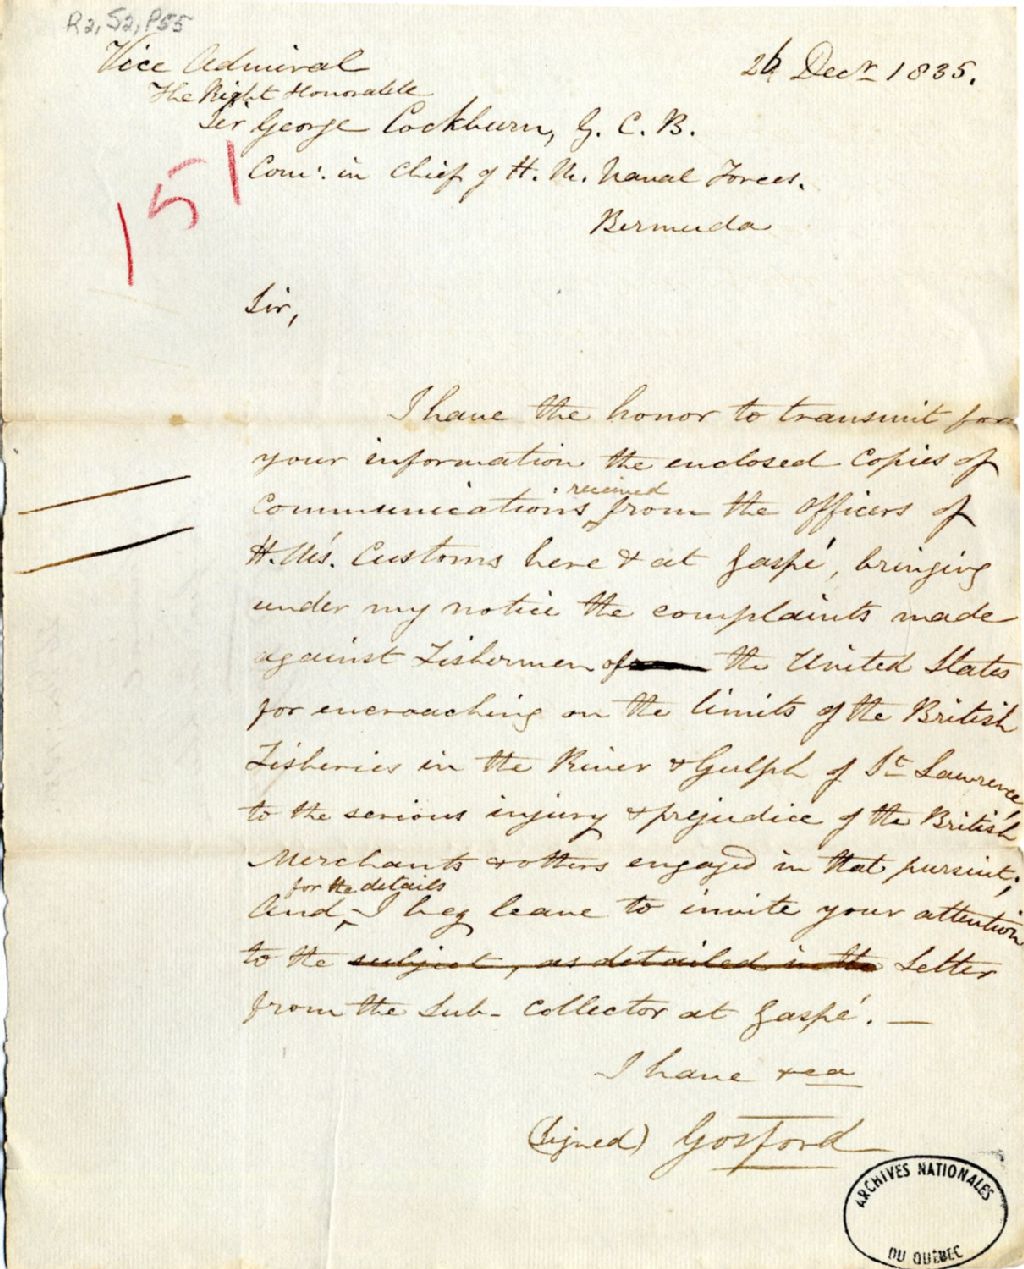 R2, S2, P55
Vice Admiral
The Right Honorable
Sir George Cockburn, G. C. B.
Comr. in Chief of H. M. Naval Forces.
Bermuda
26 Decr 1835.
151
Sir,
I have the honor to transmit for
your information the enclosed Copies of
received
Communications from the Officers of
H. M's. Customs here & at Gaspé, bringing
under my notice the complaints made
against Fishermen of the United States
for encroaching on the limits of the British
Fisheries in the River & Gulph of St Lawrence,
to the serious injury & prejudice of the British
Merchants & others engaged in that pursuit;
for the details
And, I beg leave to invite your attention
to the subject, as detailed in the Letter
from the Sub-Collector at Gaspé. —
I have &ca
(Signed) Gosford
ARCHIVES NATIONALES
DU QUEBEC